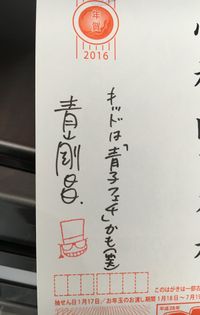 年賀
2016
キッドは「青子フェチ」かも(笑)
青山剛昌.
このはがきは一部古
抽せん日1月17日／お年玉のお渡し期間 1月18日〜7月1